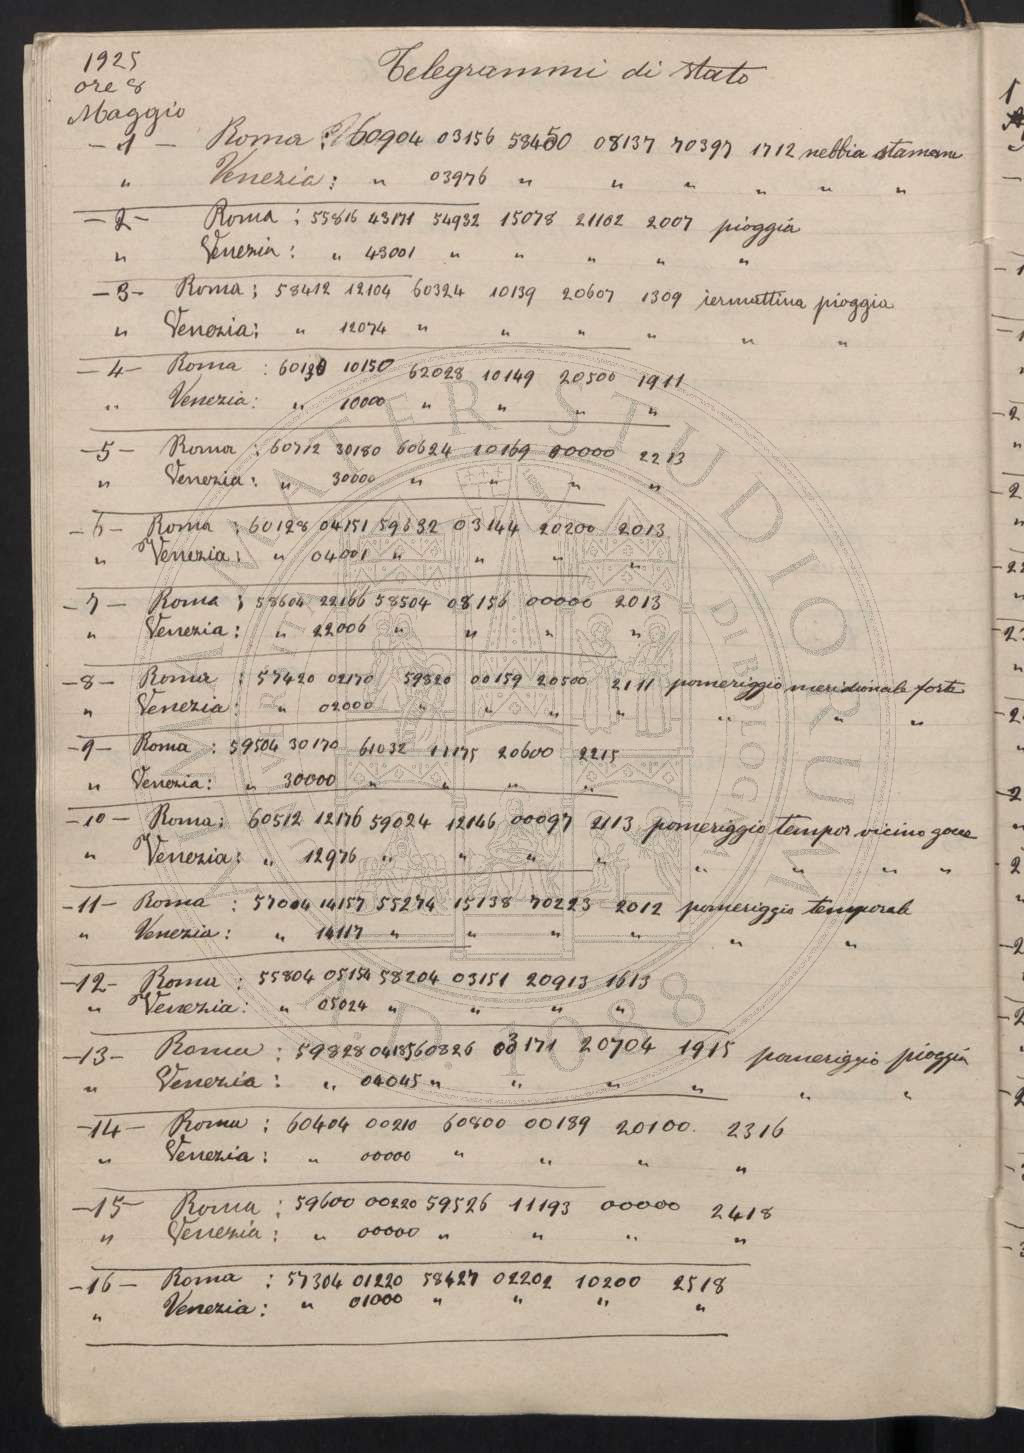 1925
ore 8
Maggio
Telegrammi di stato
-1- Roma : 60904 03156 58450 08137 70397 1712 nebbia stamane
" Venezia : " 03976 " " " " " "
-2- Roma : 55816 43171 54932 15078 21102 2007 pioggia
" Venezia : " 43001 " " " " "
-3- Roma ; 58412 12104 60324 10139 20607 1309 iermattina pioggia
" Venezia ; " 12074 " " " " " "
-4- Roma : 60130 10150 62028 10149 20500 1911
" Venezia : " 10000 " " " "
-5- Roma : 60712 30180 60624 10169 00000 2213
" Venezia : " 30000 " " " "
-6- Roma : 60128 04151 59632 03144 20200 2013
" Venezia : " 04001 " " " "
-7- Roma ; 58604 22166 58504 08156 00000 2013
" Venezia : " 22006 " " " "
-8- Roma : 57420 02170 59820 00159 20500 2111 pomeriggio meridionale forte
" Venezia : " 02000 " " " " " " "
-9- Roma : 59504 30170 61032 11175 20600 2215
" Venezia : " 30000 " " " "
-10- Roma : 60512 12176 59024 12146 00097 2113 pomeriggio tempor vicino gocce
" Venezia : " 12976 " " " " " " " "
-11- Roma : 57004 14157 55274 15138 70223 2012 pomeriggio temporale
" Venezia : " 14117 " " " " " "
-12- Roma : 55804 05154 58204 03151 20913 1613
" Venezia : " 05024 " " " "
-13- Roma : 59828 04185 60826 03171 20704 1915 pomeriggio pioggia
" Venezia : " 04045 " " " " " "
-14- Roma : 60404 00210 60800 00189 20100 2316
" Venezia : " 00000 " " " "
-15- Roma : 59600 00220 59526 11193 00000 2418
" Venezia : " 00000 " " " "
-16- Roma : 57304 01220 58427 02202 10200 2518
" Venezia : " 01000 " " " "
ALMA MATER STUDIORUM
A.D. 1088